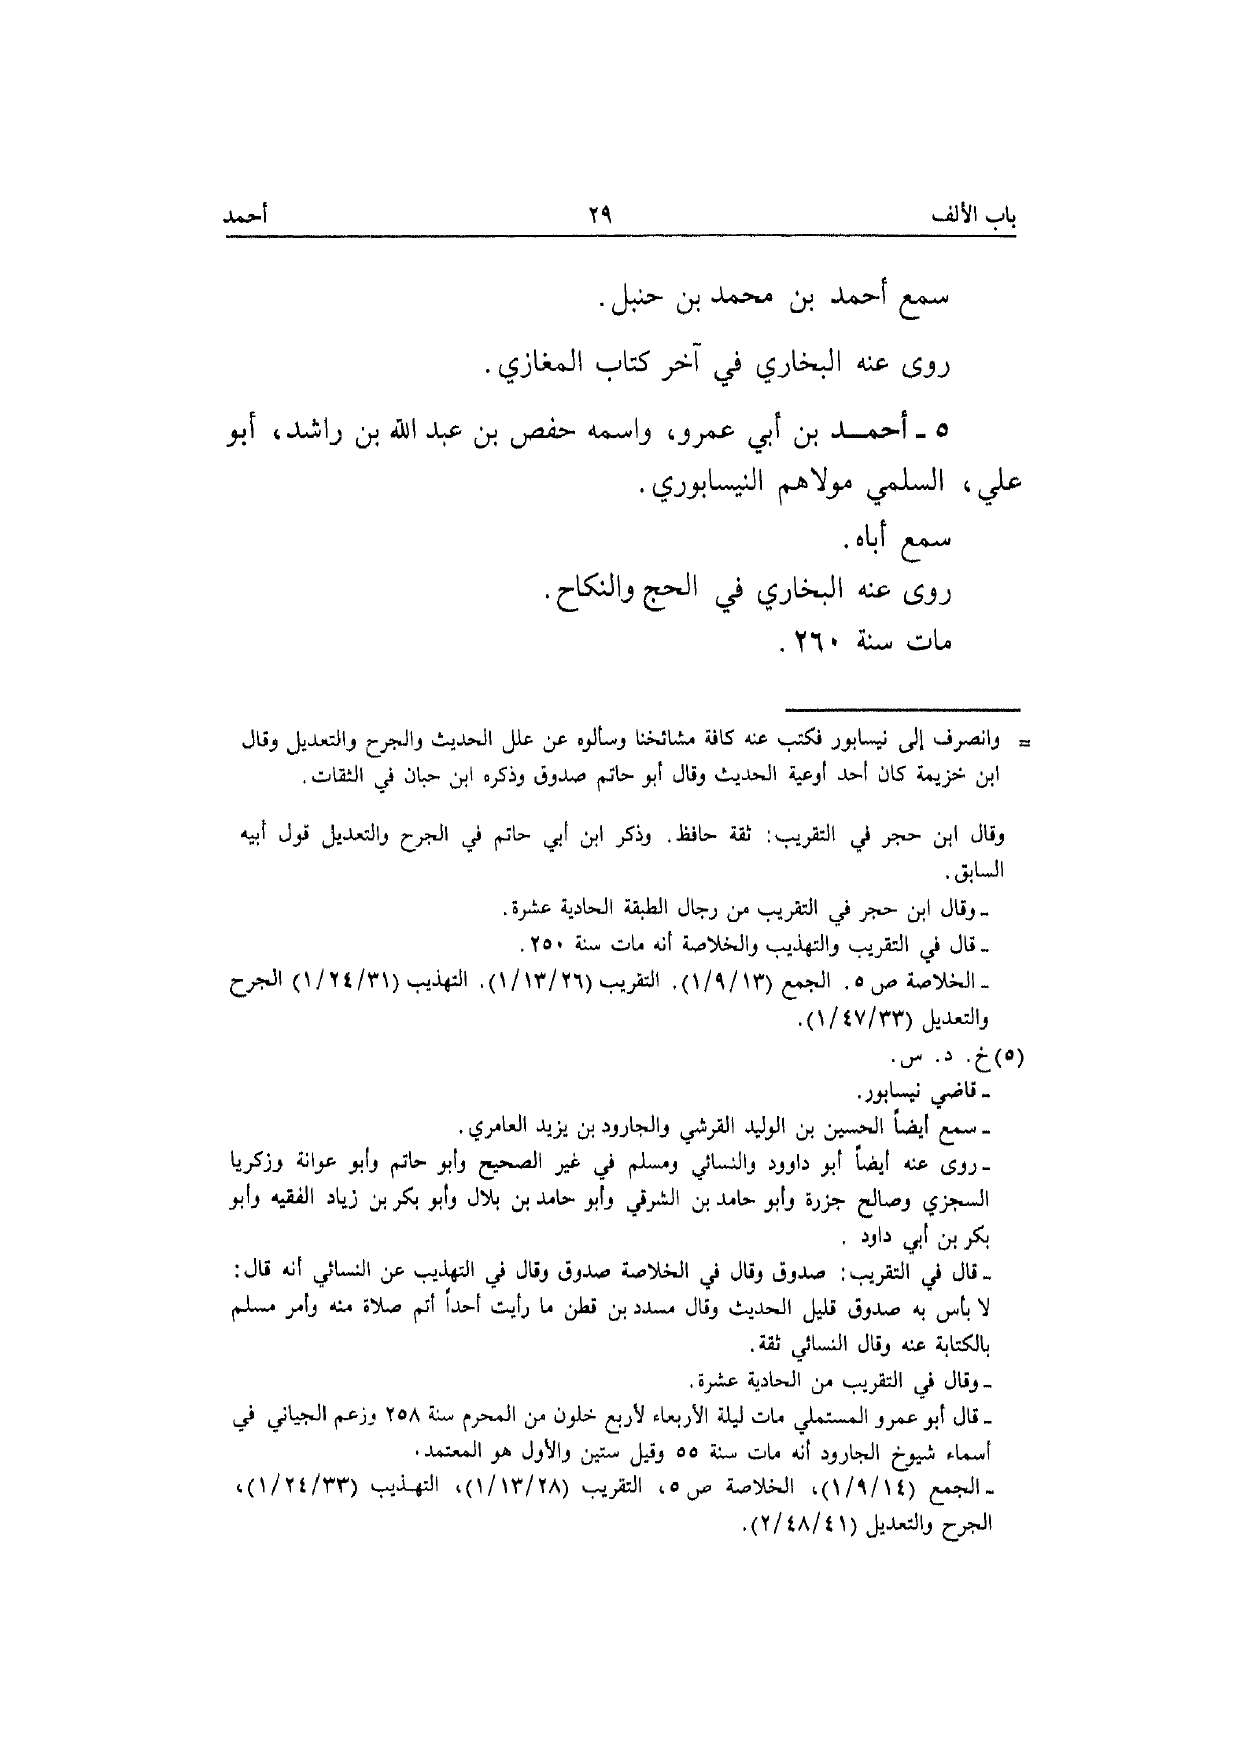 باب الألف ٢٩ أحمد
سمع أحمد بن محمد بن حنبل.
روى عنه البخاري في آخر كتاب المغازي.
٥ ـ أحمـد بن أبي عمرو، واسمه حفص بن عبد الله بن راشد، أبو
علي، السلمي مولاهم النيسابوري.
سمع أباه.
روى عنه البخاري في الحج والنكاح.
مات سنة ٢٦٠.
= وانصرف إلى نيسابور فكتب عنه كافة مشائخنا وسألوه عن علل الحديث والجرح والتعديل وقال
ابن خزيمة كان أحد أوعية الحديث وقال أبو حاتم صدوق وذكره ابن حبان في الثقات.
وقال ابن حجر في التقريب: ثقة حافظ. وذكر ابن أبي حاتم في الجرح والتعديل قول أبيه
السابق.
ـ وقال ابن حجر في التقريب من رجال الطبقة الحادية عشرة.
ـ قال في التقريب والتهذيب والخلاصة أنه مات سنة ٢٥٠.
ـ الخلاصة ص ٥. الجمع (١/٩/١٣). التقريب (١/١٣/٢٦). التهذيب (١/٢٤/٣١) الجرح
والتعديل (١/٤٧/٣٣).
(٥) خ. د. س.
ـ قاضي نيسابور.
ـ سمع أيضاً الحسين بن الوليد القرشي والجارود بن يزيد العامري.
ـ روى عنه أيضاً أبو داوود والنسائي ومسلم في غير الصحيح وأبو حاتم وأبو عوانة وزكريا
السجزي وصالح جزرة وأبو حامد بن الشرقي وأبو حامد بن بلال وأبو بكر بن زياد الفقيه وأبو
بكر بن أبي داود .
ـ قال في التقريب: صدوق وقال في الخلاصة صدوق وقال في التهذيب عن النسائي أنه قال:
لا بأس به صدوق قليل الحديث وقال مسدد بن قطن ما رأيت أحداً أتم صلاة منه وأمر مسلم
بالكتابة عنه وقال النسائي ثقة.
ـ وقال في التقريب من الحادية عشرة.
ـ قال أبو عمرو المستملي مات ليلة الأربعاء لأربع خلون من المحرم سنة ٢٥٨ وزعم الجياني في
أسماء شيوخ الجارود أنه مات سنة ٥٥ وقيل ستين والأول هو المعتمد.
ـ الجمع (١/٩/١٤)، الخلاصة ص ٥، التقريب (١/١٣/٢٨)، التهذيب (١/٢٤/٣٣)،
الجرح والتعديل (٢/٤٨/٤١).